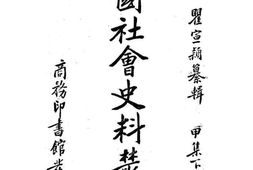 瞿宣穎纂輯 甲集下
國社會史料叢
商務印書館發